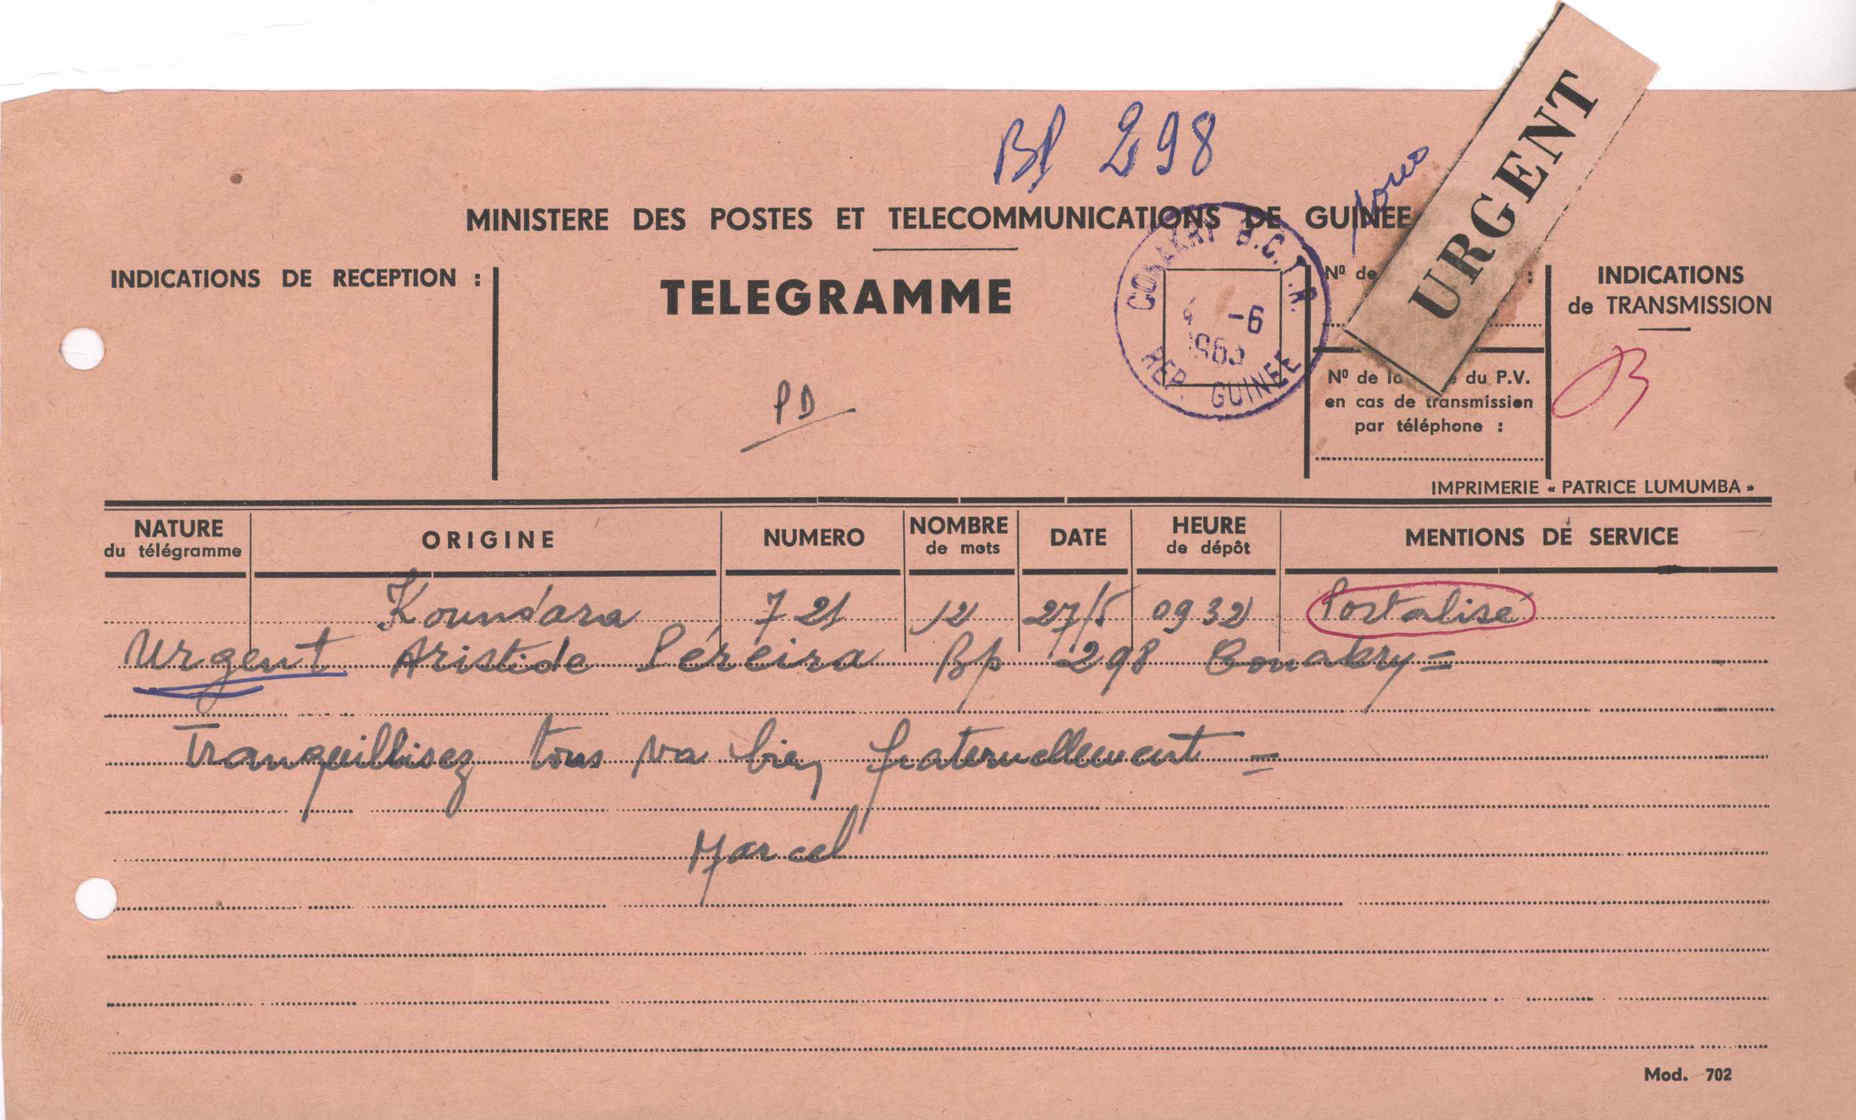 BP 298
URGENT
MINISTERE DES POSTES ET TELECOMMUNICATIONS DE GUINEE
INDICATIONS DE RECEPTION :
TELEGRAMME
CONAKRY B.C.T.R.
-6
REP. GUINEE
PD
N° de :
N° de la du P.V.
en cas de transmission
par téléphone :
INDICATIONS
de TRANSMISSION
IMPRIMERIE « PATRICE LUMUMBA »
NATURE
du télégramme
ORIGINE
NUMERO
NOMBRE
de mots
DATE
HEURE
de dépôt
MENTIONS DE SERVICE
Koundara 721 12 27/5 0932 Postalisé
Urgent Aristide Péreira Bp 298 Conakry =
Tranquillisez tous va bien fraternellement =
Marcel
Mod. 702